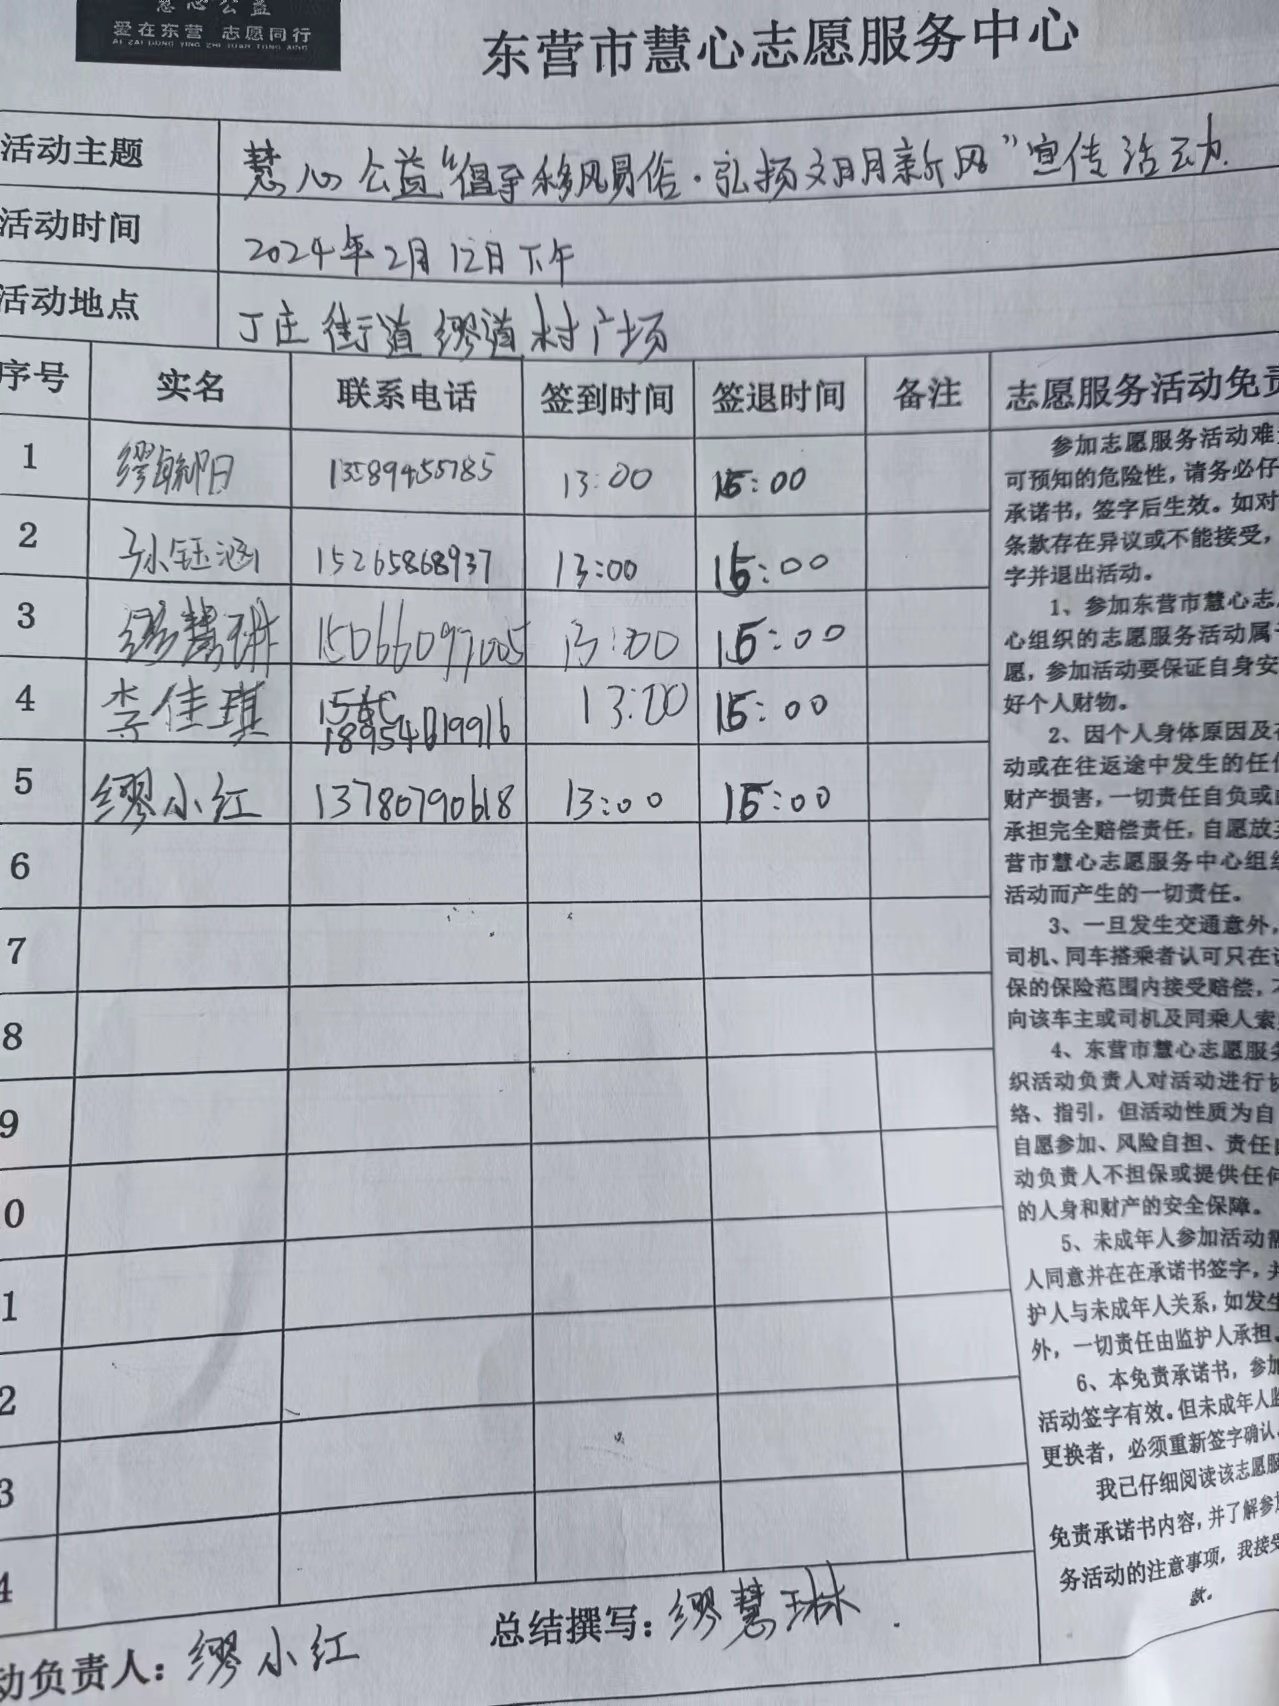 慧心公益
爱在东营 志愿同行
AI ZAI DONG YING ZHI YUAN TONG XING
东营市慧心志愿服务中心
活动主题 慧心公益“倡导移风易俗·弘扬文明新风”宣传活动.
活动时间 2024年2月12日下午
活动地点 丁庄街道缪道村广场
序号 实名 联系电话 签到时间 签退时间 备注
1 缪朝日 13:00 15:00
2 孙钰涵 15265868937 13:00 15:00
3 缪慧琳 15066097005 13:00 15:00
4 李佳琪 13:00 15:00
18954019916
5 缪小红 13780790618 13:00 15:00
6
7
8
9
0
1
2
3
4
动负责人：缪小红 总结撰写：缪慧琳
志愿服务活动免责
参加志愿服务活动难
可预知的危险性，请务必仔
承诺书，签字后生效。如对
条款存在异议或不能接受，
字并退出活动。
1、参加东营市慧心志
心组织的志愿服务活动属
愿，参加活动要保证自身安
好个人财物。
2、因个人身体原因及
动或在往返途中发生的任
财产损害，一切责任自负或
承担完全赔偿责任，自愿放
营市慧心志愿服务中心组织
活动而产生的一切责任。
3、一旦发生交通意外，
司机、同车搭乘者认可只在
保的保险范围内接受赔偿，
向该车主或司机及同乘人索
4、东营市慧心志愿服务
织活动负责人对活动进行
络、指引，但活动性质为自
自愿参加、风险自担、责任
动负责人不担保或提供任何
的人身和财产的安全保障。
5、未成年人参加活动需
人同意并在在承诺书签字，
护人与未成年人关系，如发生
外，一切责任由监护人承担。
6、本免责承诺书，参加
活动签字有效。但未成年人监
更换者，必须重新签字确认。
我已仔细阅读该志愿服
免责承诺书内容，并了解参加
务活动的注意事项，我接受
款。